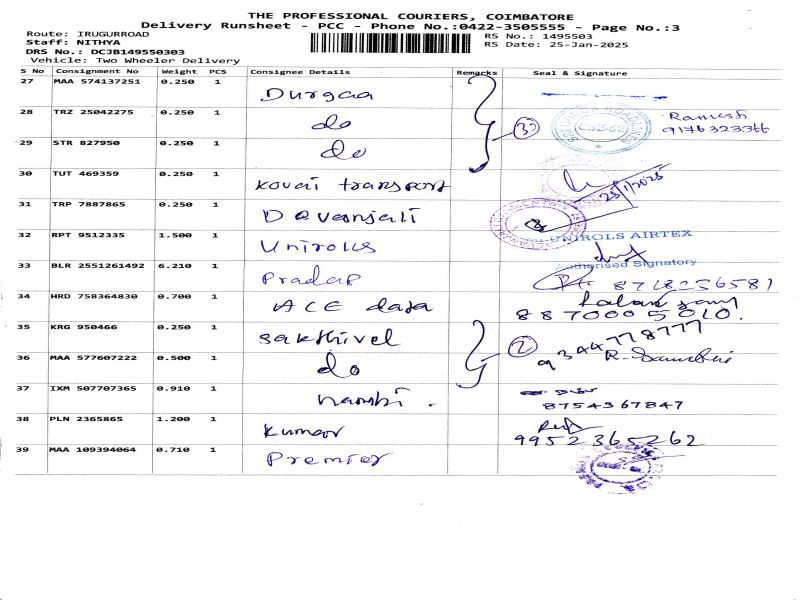 THE PROFESSIONAL COURIERS, COIMBATORE
Delivery Runsheet - PCC - Phone No.:0422-3505555 - Page No.:3
Route: IRUGURROAD
RS No.: 1495503
Staff: NITHYA
RS Date: 25-Jan-2025
DRS No.: DCJB149550303
Vehicle: Two Wheeler Delivery
S No Consignment No Weight PCS Consignee Details Remarks Seal & Signature
27 MAA 574137251 0.250 1 Durgaa
28 TRZ 25042275 0.250 1 do 3 Ramesh
9176323366
29 STR 827950 0.250 1 do
30 TUT 469359 0.250 1 Kovai transport 25/1/2025
31 TRP 7887865 0.250 1 Devanjali
32 RPT 9512335 1.500 1 Unirolls UNIROLS AIRTEX
Authorised Signatory
33 BLR 2551261492 6.210 1 Pradap 8718236581
34 HRD 758364830 0.700 1 ACE data
8870005010.
35 KRG 950466 0.250 1 Sakthivel 2 9344778777
36 MAA 577607222 0.500 1 do
37 IXM 507707365 0.910 1 nambi. 8754367847
38 PLN 2365865 1.200 1 Kumar 9952365262
39 MAA 109394064 0.710 1 Premier